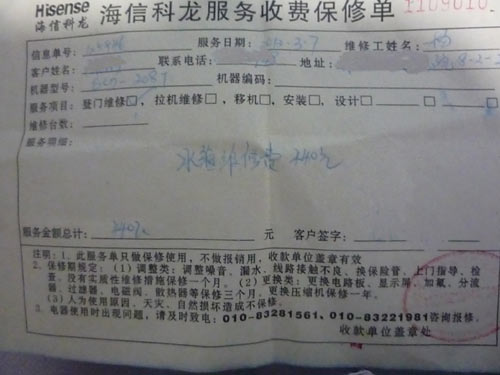 Hisense 海信科龙
海信科龙服务收费保修单
信息单号: 服务日期: 维修工姓名:
客户姓名: 联系电话: 地址:
机器型号: BCD-208T 机器编码:
服务项目: 登门维修□, 拉机维修□, 移机□, 安装□, 设计□
维修台数:
服务明细:
冰箱维修费 240元
服务金额总计: 240元 元 客户签字:
注明: 1. 此服务单只做保修使用, 不做报销用, 收款单位盖章有效
2. 保修期规定: (1) 调整类: 调整噪音、漏水, 线路接触不良、换保险管、上门指导、检
查、没有实质性维修措施保修一个月。(2) 更换类: 更换电路板、显示屏、加氟、分流
器、过滤器、电磁阀、散热器等保修三个月, 更换压缩机保修一年。
(3) 人为使用原因、天灾、自然损坏造成不保修。
3. 电器使用时出现问题, 请及时致电: 010-83281561、010-83221981咨询报修。
收款单位盖章处